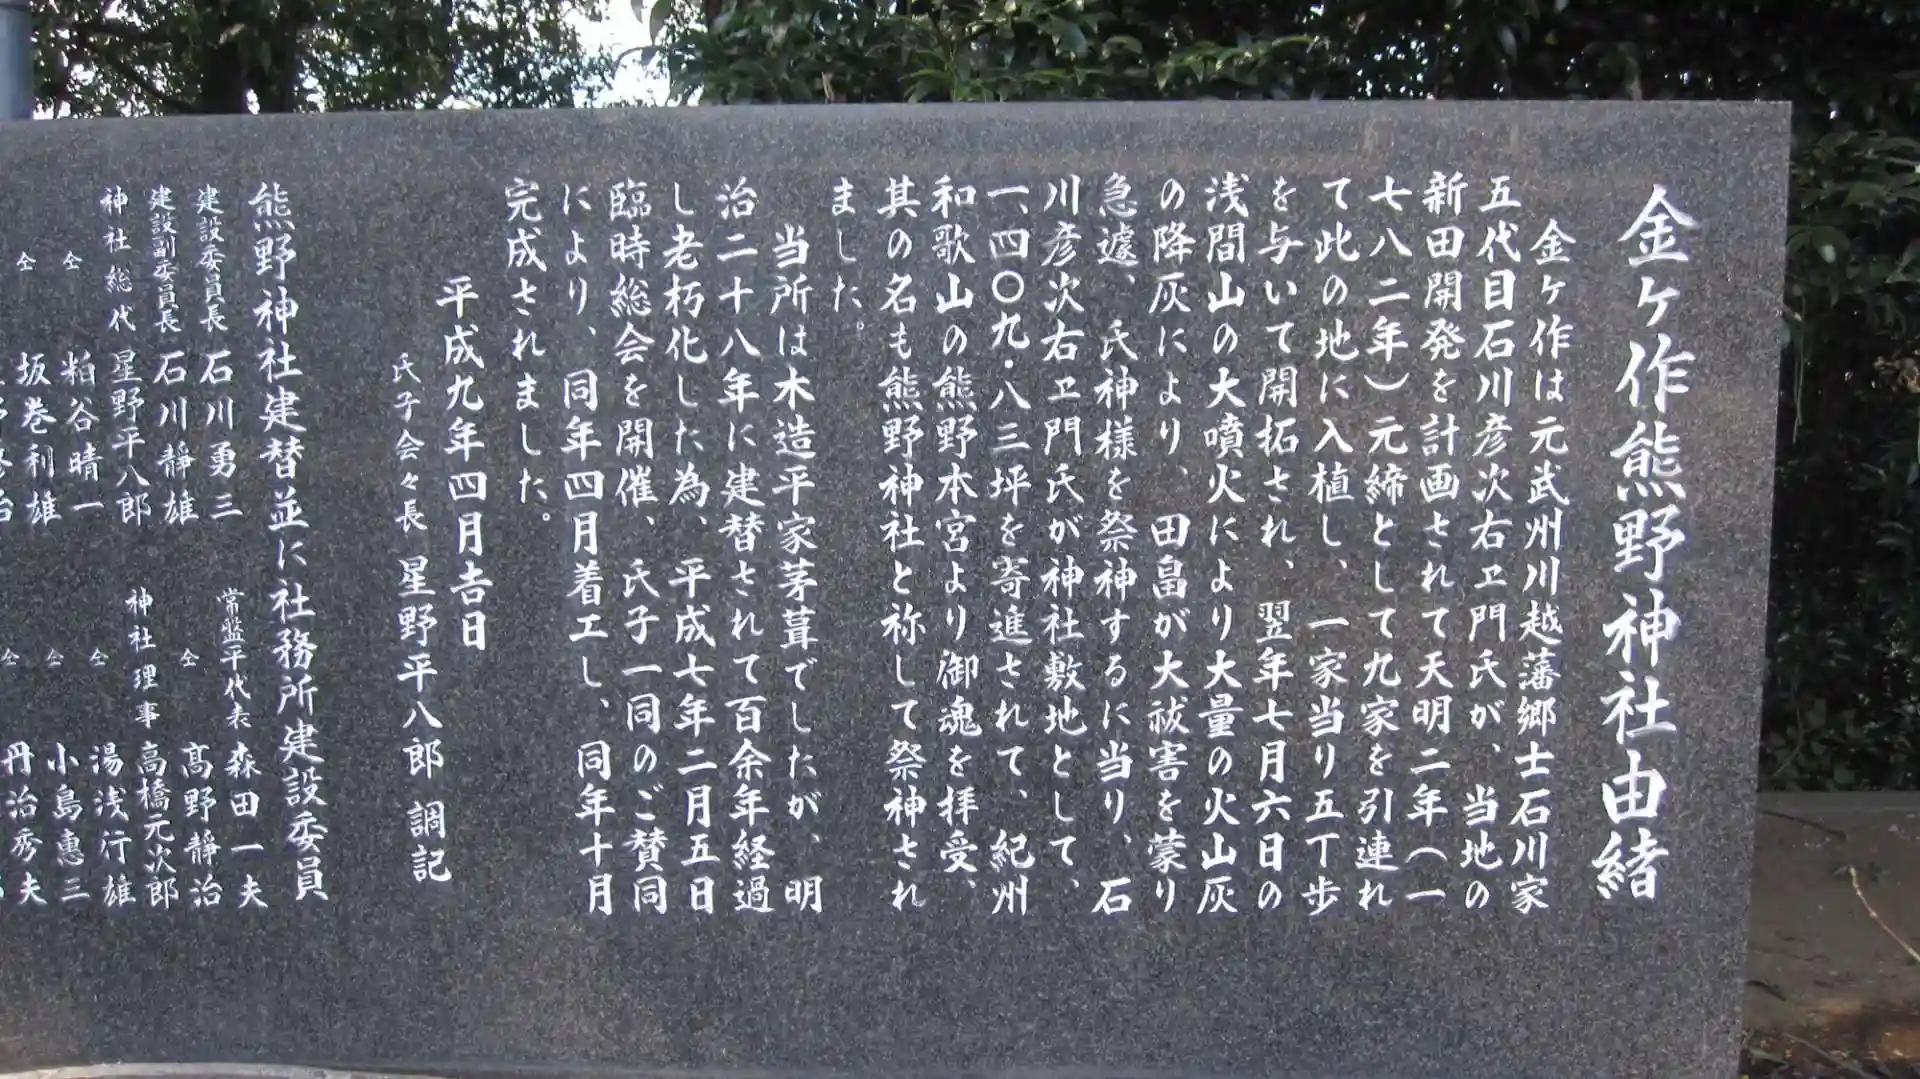 金ヶ作熊野神社由緒
金ヶ作は元武州川越藩郷士石川家
五代目石川彦次右ヱ門氏が、当地の
新田開発を計画されて天明二年(一
七八二年)元締として九家を引連れ
て此の地に入植し、一家当り五丁歩
を与いて開拓され、翌年七月六日の
浅間山の大噴火により大量の火山灰
の降灰により、田畠が大祓害を蒙り
急遽、氏神様を祭神するに当り、石
川彦次右ヱ門氏が神社敷地として、
一、四〇九・八三坪を寄進されて、紀州
和歌山の熊野本宮より御魂を拝受、
其の名も熊野神社と祢して祭神され
ました。
当所は木造平家茅葺でしたが、明
治二十八年に建替されて百余年経過
し老朽化した為、平成七年二月五日
臨時総会を開催、氏子一同のご賛同
により、同年四月着工し、同年十月
完成されました。
平成九年四月吉日
氏子会々長 星野平八郎 調記
熊野神社建替並に社務所建設委員
建設委員長 石川勇三 常盤平代表 森田一夫
建設副委員長 石川靜雄 仝 髙野靜治
神社総代 星野平八郎 神社理事 高橋元次郎
仝 粕谷晴一 仝 湯浅行雄
仝 坂巻利雄 仝 小島惠三
仝 丹治秀夫